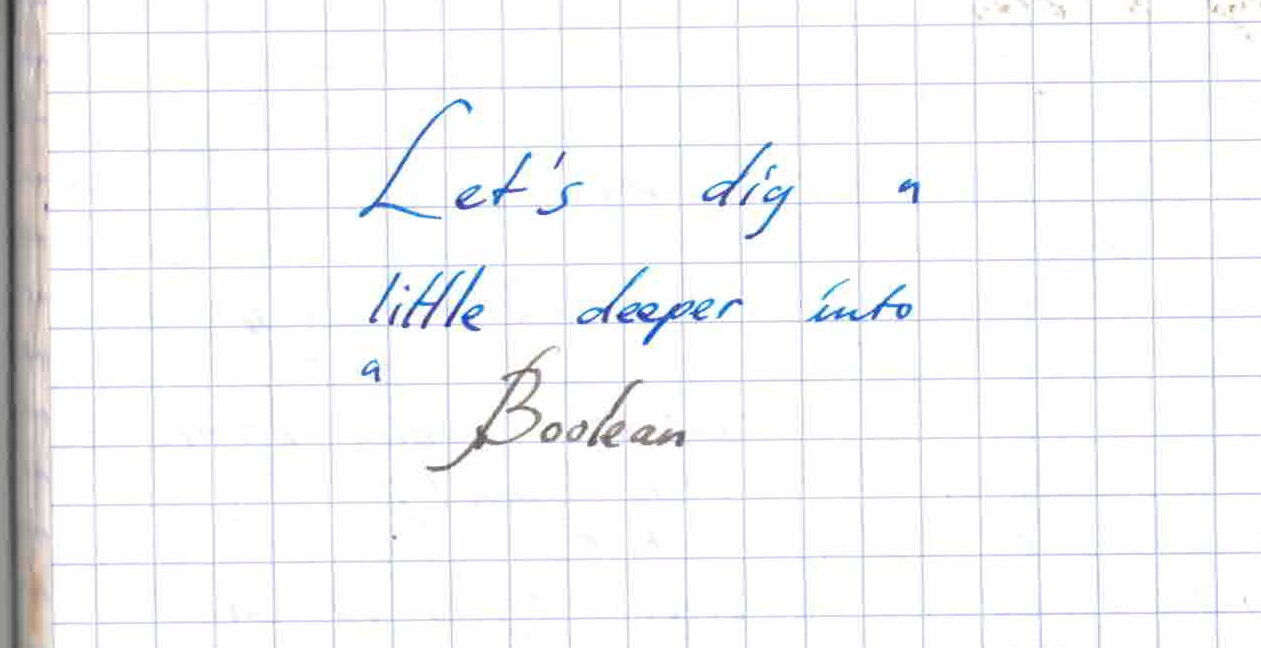 Let's dig a
little deeper into
a Boolean